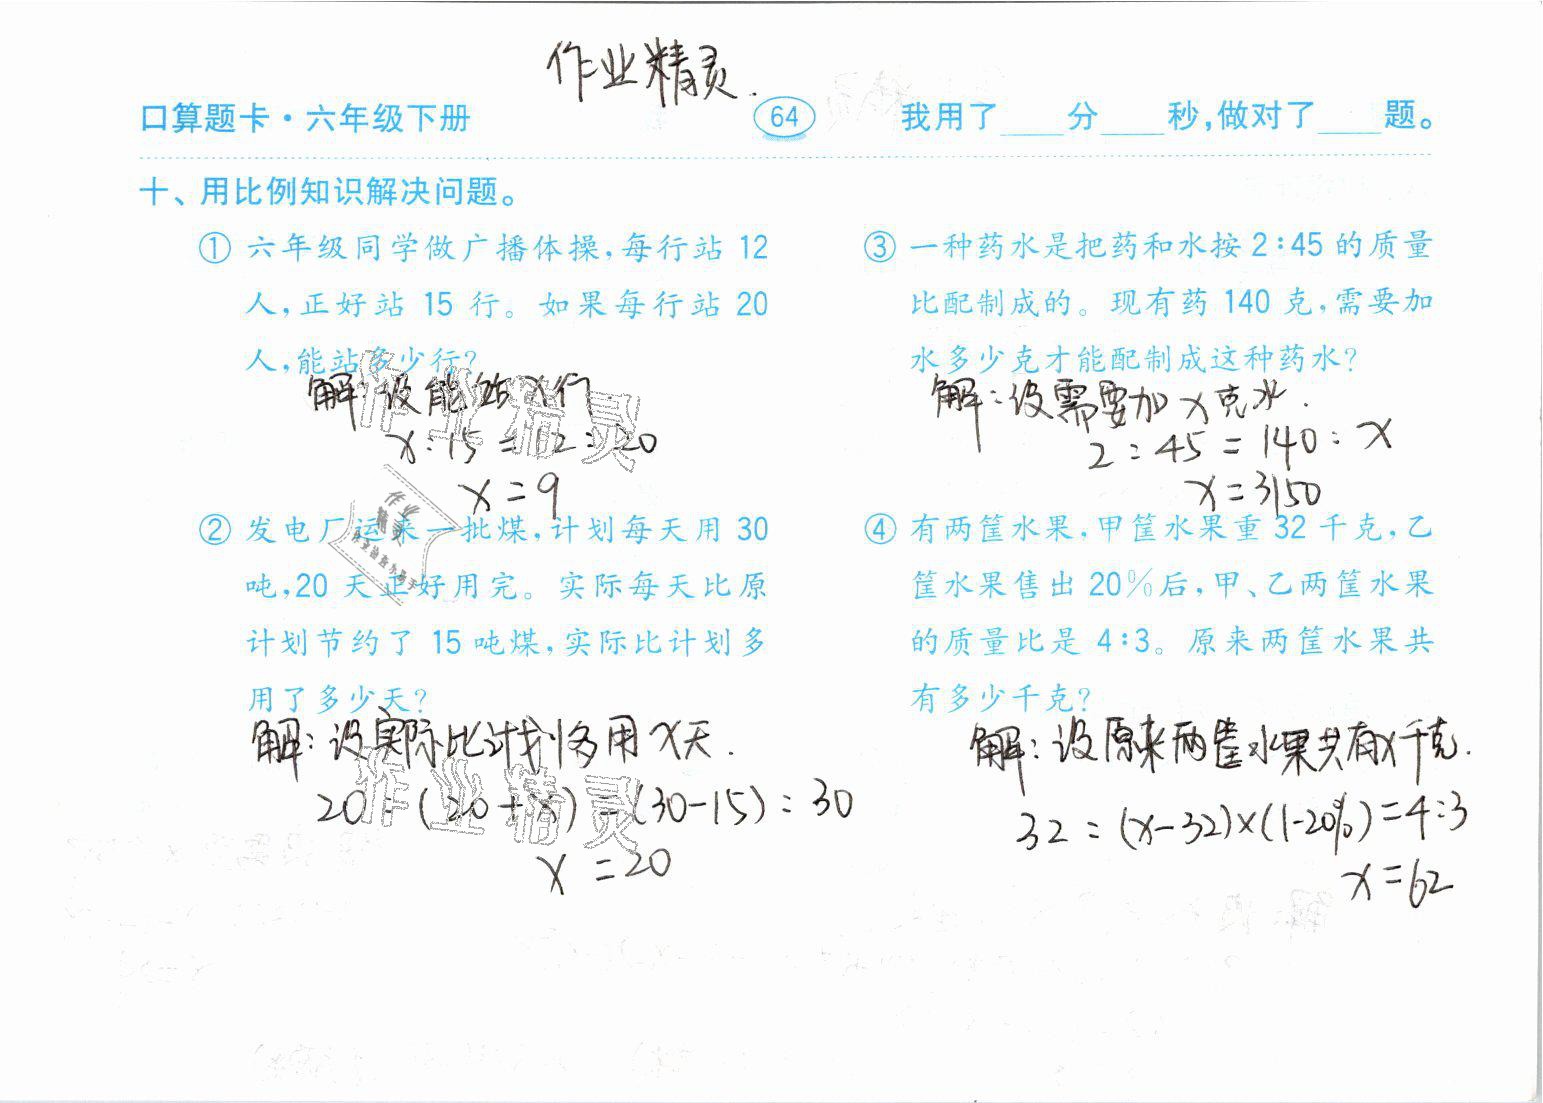 作业精灵.
口算题卡·六年级下册
64
我用了____分____秒,做对了____题。
十、用比例知识解决问题。
① 六年级同学做广播体操,每行站 12
人,正好站 15 行。如果每行站 20
人,能站多少行?
解:设能站x行
x:15=12:20
x=9
② 发电厂运来一批煤,计划每天用 30
吨,20 天正好用完。实际每天比原
计划节约了 15 吨煤,实际比计划多
用了多少天?
解:设实际比计划多用x天.
20:(20+x)=(30-15):30
x=20
③ 一种药水是把药和水按 2:45 的质量
比配制成的。现有药 140 克,需要加
水多少克才能配制成这种药水?
解:设需要加x克水.
2:45=140:x
x=3150
④ 有两筐水果,甲筐水果重 32 千克,乙
筐水果售出 20%后,甲、乙两筐水果
的质量比是 4:3。原来两筐水果共
有多少千克?
解:设原来两筐水果共有x千克.
32:(x-32)×(1-20%)=4:3
x=62
作业精灵
作业
精灵
作业精灵